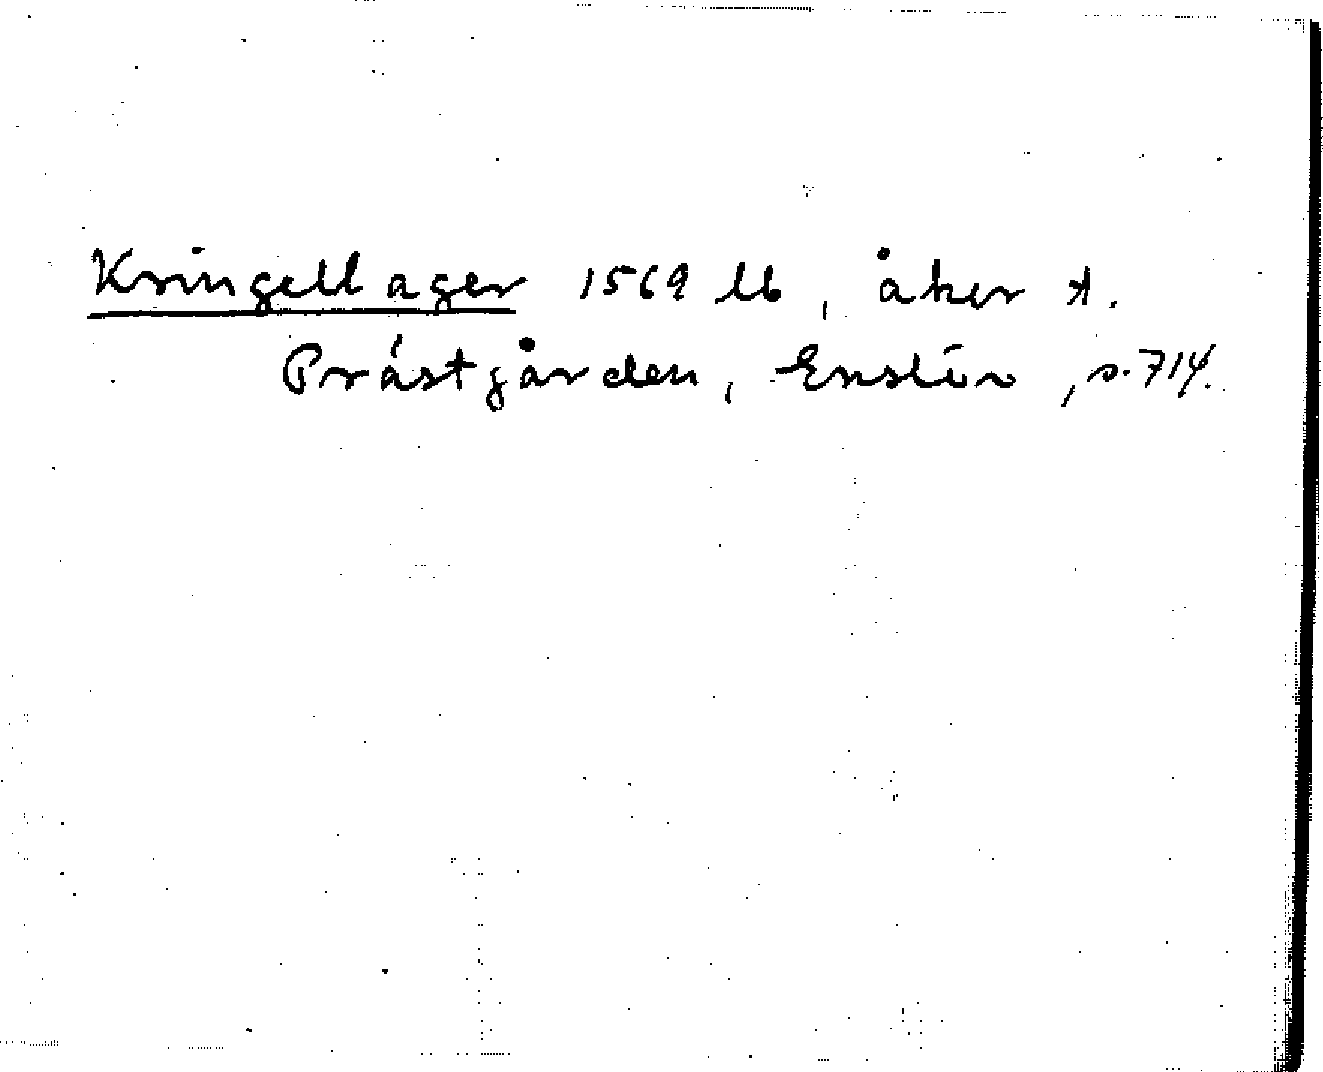 Kringell ager 1569 lb, åker t.
Prästgården, Enslöv, s. 714.